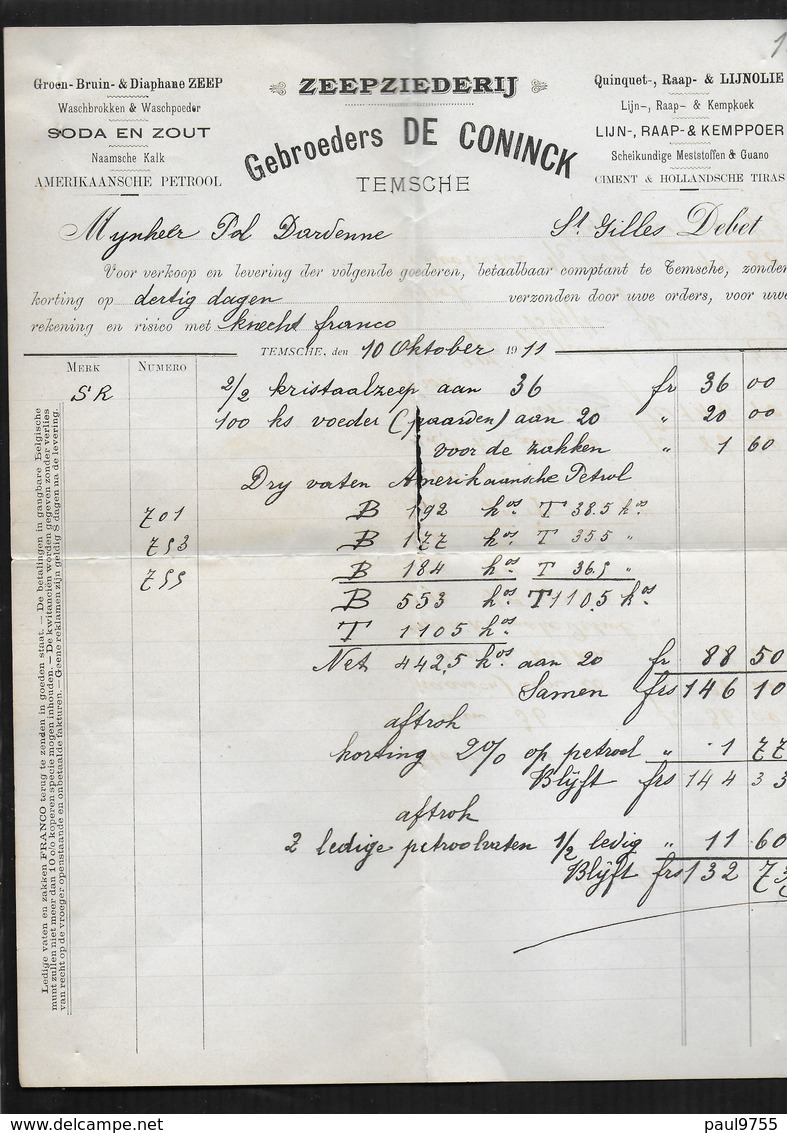 Groen- Bruin- & Diaphane ZEEP
Waschbrokken & Waschpoeder
SODA EN ZOUT
Naamsche Kalk
AMERIKAANSCHE PETROOL
ZEEPZIEDERIJ
Gebroeders DE CONINCK
TEMSCHE
Quinquet-, Raap- & LIJNOLIE
Lijn-, Raap- & Kempkoek
LIJN-, RAAP- & KEMPPOER
Scheikundige Meststoffen & Guano
CIMENT & HOLLANDSCHE TIRAS
Mynheer Pol Dardenne St Gilles Debet
Voor verkoop en levering der volgende goederen, betaalbaar comptant te Temsche, zonder
korting op dertig dagen verzonden door uwe orders, voor uwe
rekening en risico met knecht franco
TEMSCHE, den 10 Oktober 1911
MERK NUMERO
SR 2/2 kristaalzeep aan 36 fr 36 00
100 ks voeder (paarden) aan 20 " 20 00
voor de zakken " 1 60
Dry vaten Amerikaansche Petrol
701 B 192 kos T 38.5 kos
753 B 177 kos T 355 "
755 B 184 kos T 36.5 "
B 553 kos T 110.5 kos
T 1105 kos
Net 442,5 kos aan 20 fr 88 50
Samen frs 146 10
aftrok
korting 2% op petrool " 1 77
Blijft frs 144 33
aftrok
2 ledige petroolvaten 1/2 ledig " 11 60
Blijft frs 132 73
Ledige vaten en zakken FRANCO terug te zenden in goeden staat. — De betalingen in gangbare Belgische
munt zullen niet meer dan 10 o/o koperen specie mogen inhouden. — De kwitanciën worden gegeven zonder verlies
van recht op de vroeger openstaande en onbetaalde fakturen. — Geene reklamen zijn geldig 8 dagen na de levering.
paul9755